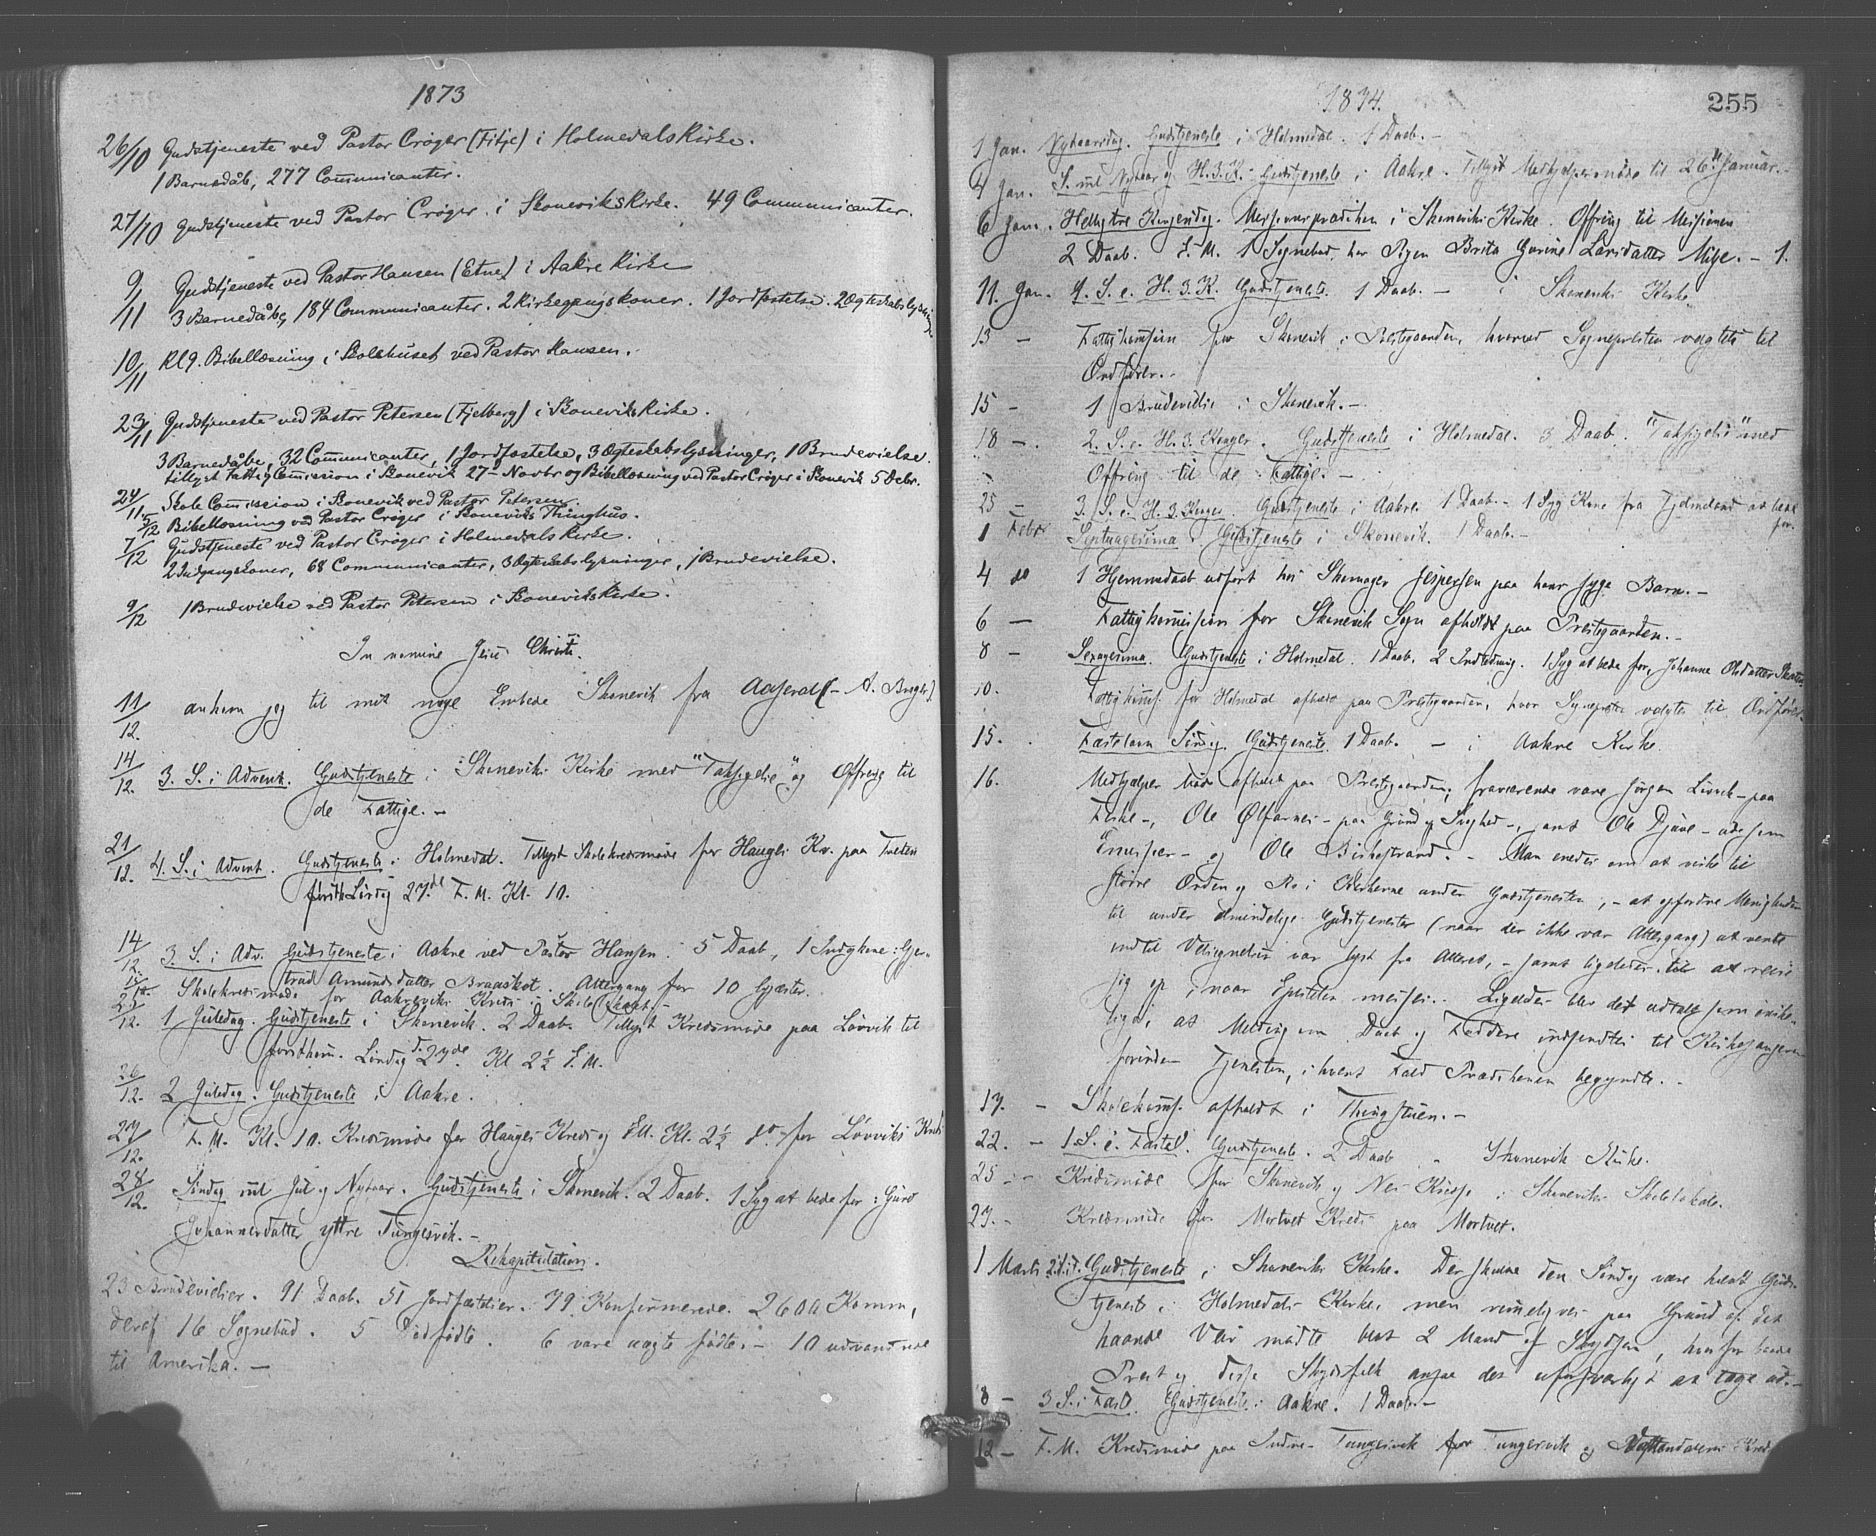 1873
26/10 Gudstjeneste ved Pastor Crøger (Fitje) i HolmedalsKirke.
1 Barnedåb, 277 Communicanter.
27/10 Gudstjeneste ved Pastor Crøger i SkoneviksKirke. 49 Communicanter.
9/11 Gudstjeneste ved Pastor Hansen (Etne) i Aakre Kirke
3 Barnedåbe, 184 Communicanter. 2 Kirkegangskoner. 1 Jordfæstelse. 2 Ogteskabslysning.
10/11 Kl 9. Bibellæsning i Skolehuset ved Pastor Hansen.
23/11 Gudstjeneste ved Pastor Petersen (Fjelberg) i SkoneviksKirke.
3 Barnedåbe, 32 Communicanter, 1 Jordfæstelse, 3 Ogteskabslysninger, 1 Brudevielse.
tillyst FattigComission i Skonevik 27- Novbr og Bibellæsning ved Pastor Crøger i Skonevik 5 Debr.
24/11 Skole Comission i Skonevik ved Pastor Petersen.
5/12 Bibellæsning ved Pastor Crøger i Skoneviks Thinghus.
7/12 Gudstjeneste ved Pastor Crøger i HolmedalsKirke.
2 Indgangskoner, 68 Communicanter, 3 Ogteskabslysninger, 1 Brudevielse.
9/12 1 Brudevielse ved Pastor Petersen i SkoneviksKirke.
In nomine Jesu Christi.
11/12. ankom jeg til mit nye Embede Skonevik fra
14/12. 3. S. i Advent. Gudstjeneste i Skoneviks Kirke med "Taksigelse" og Offring til
de Fattige. -
21/12. 4. S. i Advent. Gudstjeneste i Holmedal. Tillyst Skolekredsmøde for Hauges Kr. paa Tveten
Lørdag 27de F. M. Kl. 10.
14/12. 3. S. i Adv. Gudstjeneste i Aakre ved Pastor Hansen. 5 Daab, 1
Amundsdatter Altergang for 10 Gjæster.
Skolekredsmøde for Aakreviks Kreds i
25/12. 1 Juledag. Gudstjeneste i Skonevik. 2 Daab. Tillyst Kredsmøde paa Løvvik til
Lørdag d. 27de Kl 2½ E. M.
26/12. 2 Juledag. Gudstjeneste i Aakre.
27/12. F. M. Kl. 10. Kredsmøde for Hauges Kreds og EM. Kl. 2½ do for Løvviks Kreds
28/12. Søndag ml Jul og Nytaar. Gudstjeneste i Skonevik. 2 Daab. 1 Syg at bede for: Guro
Johannesdatter yttre Tungesvik. -
Rekapitulation.
23 Brudevielser. 91 Daab. 51 Jordfæstelser. 79 Konfirmerede. Komm,
deraf 16 Sognebud. 5 Dødfødte. 6 vare uægte fødte. - 10 udvandrede
til Amerika. -
1874.
255
1 Jan. Nytaarsdag. Gudstjeneste i Holmedal. 1 Daab. -
4 Jan. S. ml Nytaar og H. 3. K. Gudstjeneste i Aakre. Tillyst Medhjælpermøde til 26de Januar. -
6 Jan. Helligtre Kongersdag. Missionsprædiken i Skoneviks Kirke. Offring til Missionen
2 Daab. E. M. 1 Sognebud hos Pigen Brita Gurine Larsdatter Milje. - 1.
11. Jan. 1. S. e. H. 3. K. Gudstjeneste 1 Daab. - i Skoneviks Kirke
13 - Fattigkomission for Skonevik i Prestegaarden, hvorved Sognepresten valgtes til
Ordfører. -
15 - 1 Brudevielse i Skonevik. -
18 -. 2. S. e. H. 3. Konger. Gudstjeneste i Holmedal. 3 Daab. "Taksigelse" med
Offring til de Fattige. -
25 - 3. S. e. H. 3. Konger. Gudstjeneste i Aakre. 1 Daab - 1 Syg Kone fra at bede
for.
1 Febr. Septuagesima. Gudstjeneste i Skonevik. 1 Daab. -
4 do 1 Hjemmedaab udført hos Skomager Jespersen paa hans syge Barn. -
6 - Fattigkomission for Skonevik Sogn afholdt paa Prestegaarden. -
8 - Sexagesima. Gudstjeneste i Holmedal. 1 Daab. 2 Indledning. 1 Syg at bede for, Johanne Olsdatter
10. Fattigkomms. for Holmedal afholdt paa Prestegaarden, hvor Sognepresten valgtes til Ordfører
15. Fastelavn Søndag. Gudstjeneste. 1 Daab. - i Aakre Kirke.
16. Medhjælper Møde afholdt paa Prestegaarden; fraværende vare Jørgen Løvvik - paa
Fiske -, Ole Ølfarnes - paa Grund af Svaghed -, samt Ole Djuve - ude som
- og Ole Birkestrand. - Man enedes om at virke til
større Orden og Ro i Kirkerne under Gudstjenesten, - at opfordre Menigheden
til under almindelige Gudstjenester (naar der ikke var Altergang) at vente
indtil Velsignelsen var lyst fra Alteret, - samt ligeledes til at reise
sig op, naar Epistelen messes. Ligeledes blev det udtalt som ønske-
ligt, at Melding om Daab og Faddere indsendtes til Kirkesangeren
forinden Tjenesten, i hvert Fald Prædikenen begyndte. -
17. - Skolekomms. afholdt i Thingstuen. -
22. - 1 S. i Faste. Gudstjeneste. 2 Daab - Skonevik Kirke.
25 - Kredsmøde for Skonevik og Nes Kredse i Skoneviks Skolelokale.
27. - Kredsmøde for Mortvet Kreds paa Mortvet.
1 Marts 2. S. i F. Gudstjeneste i Skoneviks Kirke. Der skulde den Søndag være holdt Guds-
tjeneste i Holmedals Kirke, men rimeligvis paa Grund af det
haarde Veir mødte blot 2 Mand af Skydsen, hvorfor baade
Prest og disse Skydsfolk ansaa det uforsvarligt at tage ud. -
8 - 3 S. i Faste. Gudstjeneste i Aakre. 1 Daab. -
12 - F. M. Kredsmøde paa Indre Tungesvik for Tungesvik og Kreds